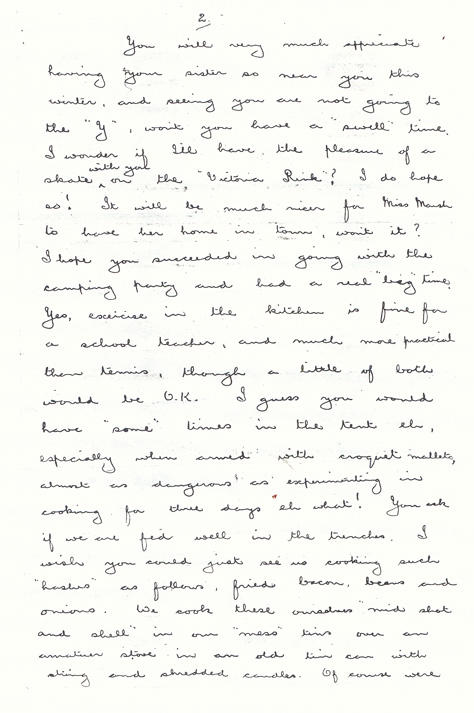 2.
You will very much appreciate
having your sister so near you this
winter, and seeing you are not going to
the "Y", wont you have a "swell" time.
I wonder if I'll have the pleasure of a
with you
skate ^ on the "Victoria Rink"? I do hope
so! It will be much nicer for Miss Marsh
to have her home in town, wont it?
I hope you succeeded in going with the
camping party and had a real "big" time.
Yes, exercise in the kitchen is fine for
a school teacher, and much more practical
than tennis, though a little of both
would be O.K. I guess you would
have "some" times in the tent eh,
especially when armed with croquet mallets,
almost as dangerous as experimenting in
cooking for three days eh what! You ask
if we are fed well in the trenches. I
wish you could just see us cooking such
"hashes" as follows, fried bacon, beans and
onions. We cook these ourselves "mid shot
and shell" in our "mess" tins over an
amatiuer stove in an old tin can with
string and shredded candles. Of course were